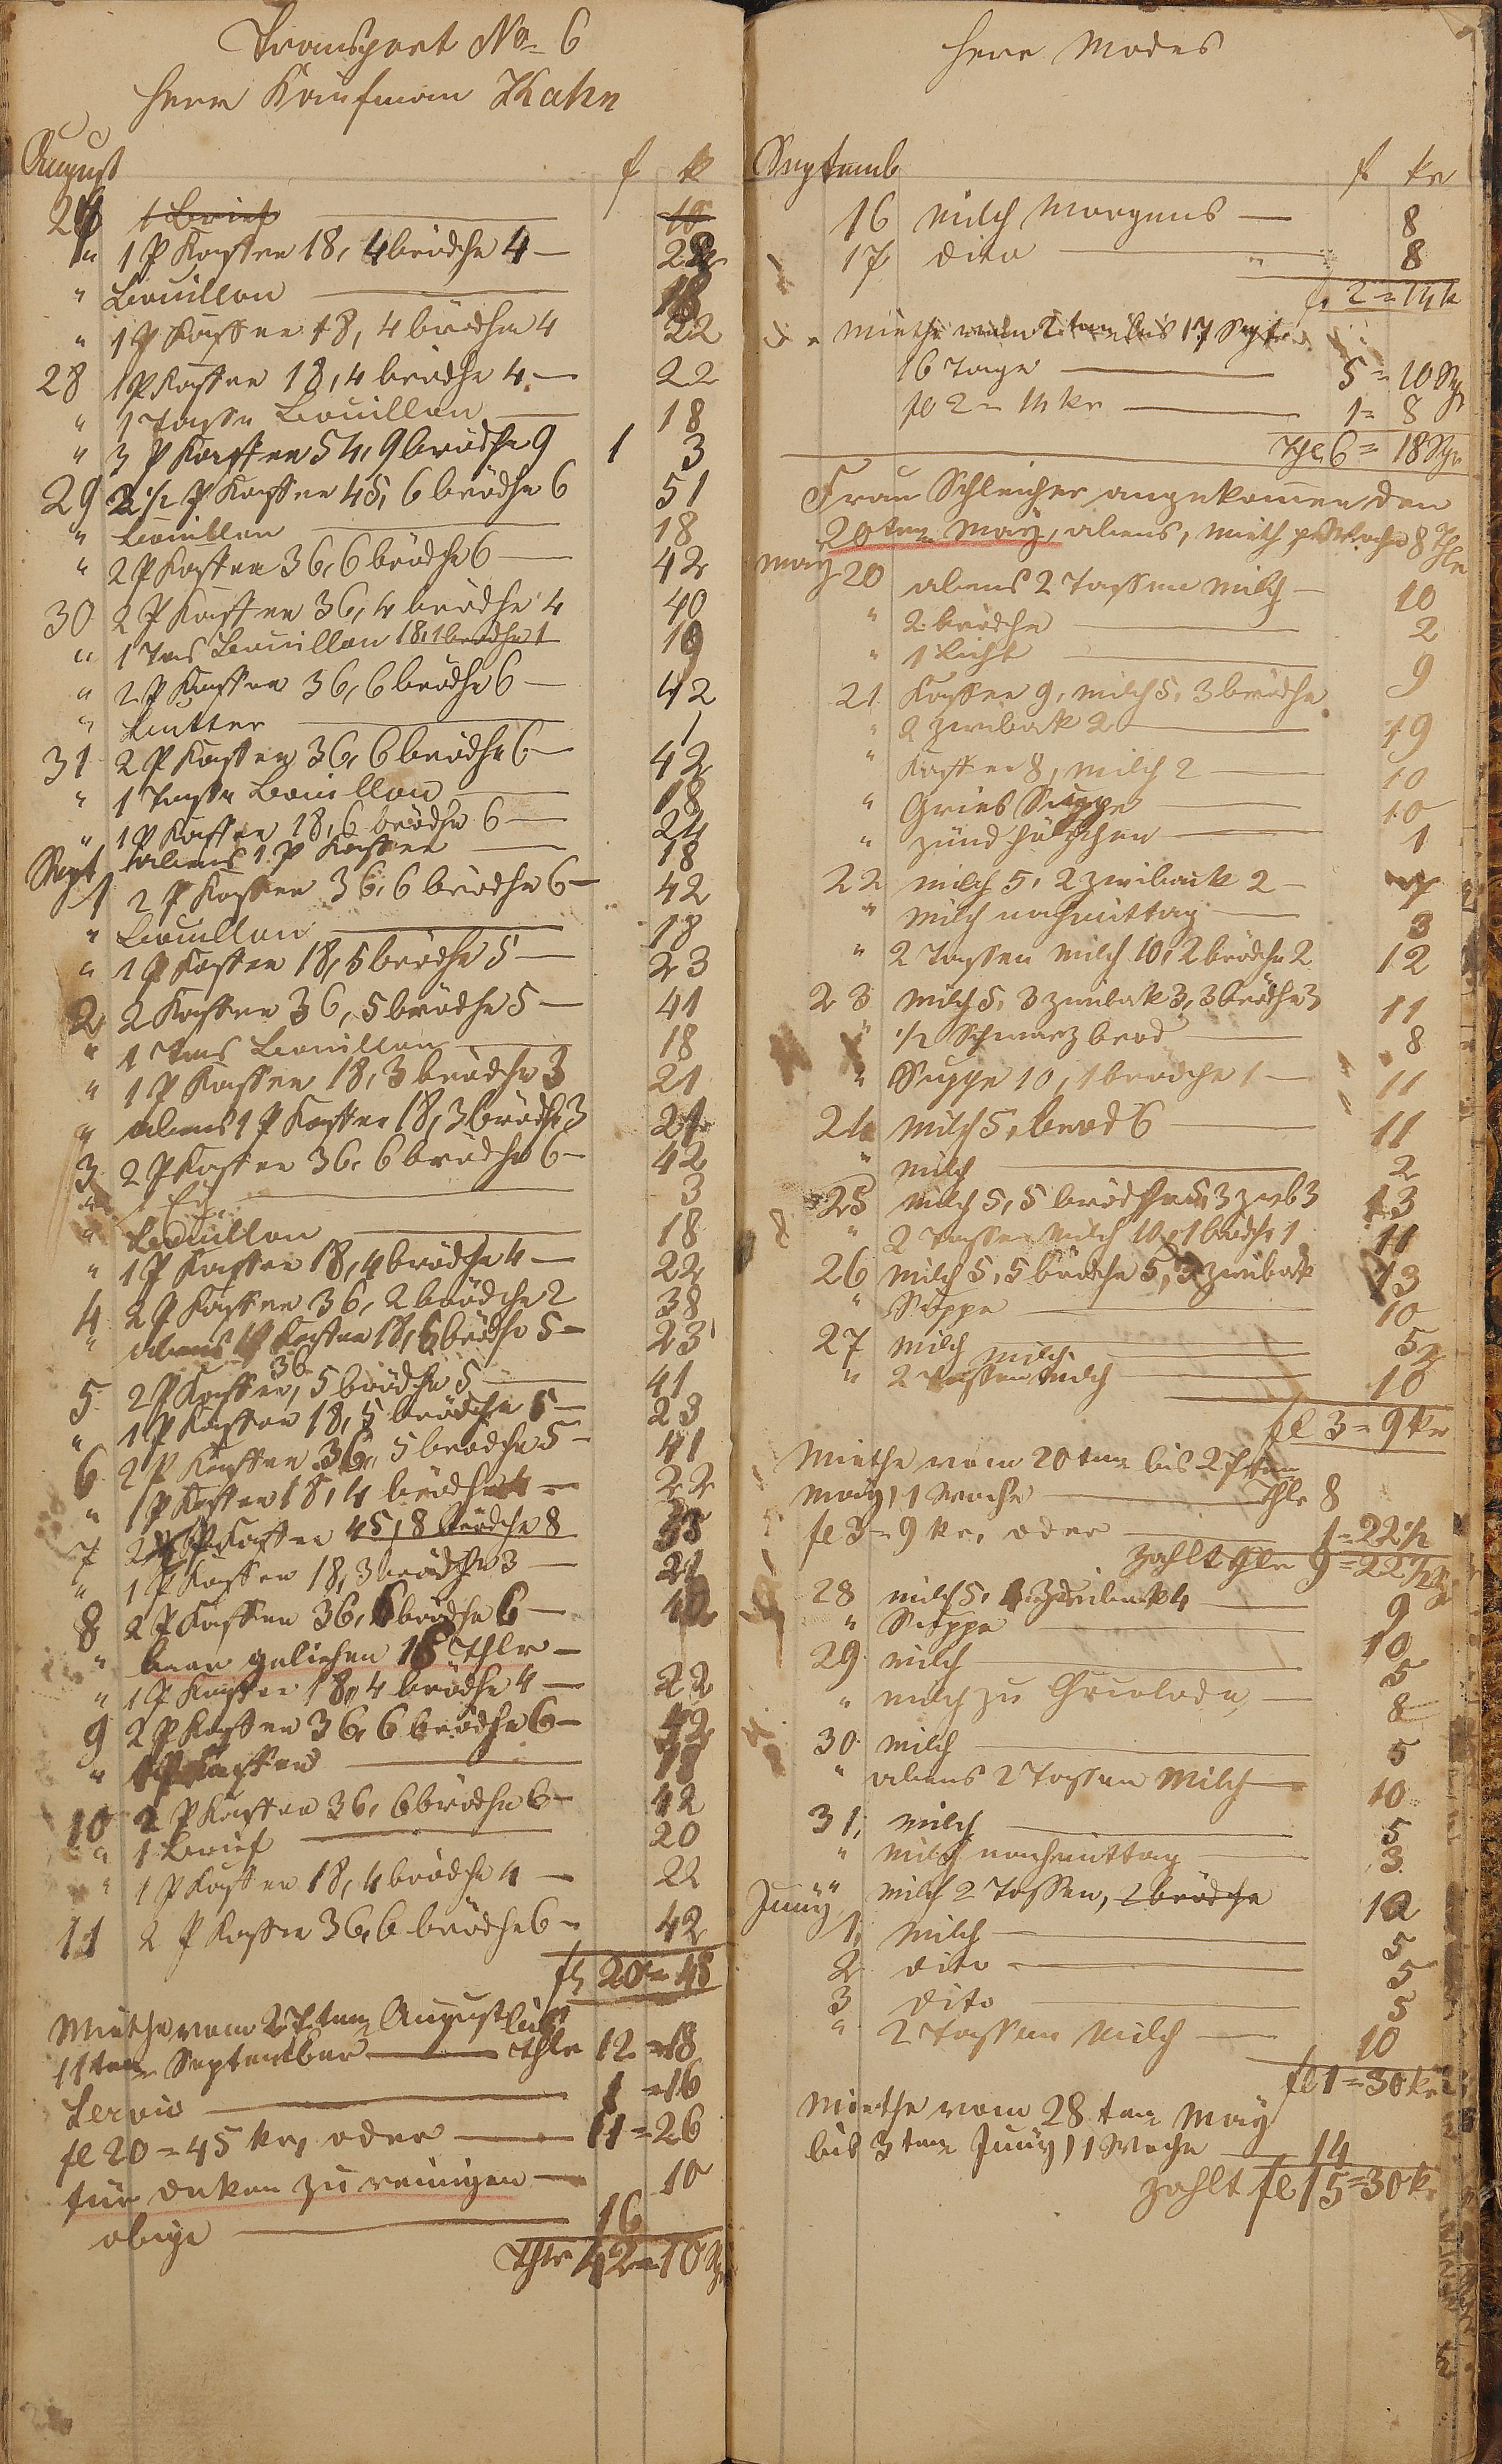 Transport No 6
Herr Kaufmann Kahn
August f k
1 Brief
" 1 P Kaffee 18, 4 brödche 4 — 22
" Bouillon 18
" 1 P Kaffee 18, 4 brödche 4 22
28 1 P Kaffee 18, 4 brödche 4 — 22
" 1 Tasse Bouillon — 18
" 3 P Kaffee 54, 9 brödche 9 1 3
29 2 1/2 P Kaffee 45, 6 brödche 6 51
" Bouillon 18
" 2 P Kaffee 36, 6 brödche 6 — 42
30 2 P Kaffee 36, 4 brödche 4 40
" 1 Tas Bouillon 18, 1 brödche 1 19
" 2 P Kaffee 36, 6 brödche 6 — 42
" Butter — 1
31 2 P Kaffee 36, 6 brödche 6 — 42
" 1 Tasse Bouillon — 18
" 1 P Kaffee 18, 6 brödche 6 — 24
abens 1 P Kaffee — 18
Sept 1 2 P Kaffee 36, 6 brödche 6 — 42
" Bouillon — 18
" 1 P Kaffee 18, 5 brödche 5 — 23
2 2 Kaffee 36, 5 brödche 5 — 41
" 1 Tas Bouillon — 18
" 1 P Kaffee 18, 3 brödche 3 21
" abens 1 P Kaffee 18, 3 brödche 3 21
3 2 P Kaffee 36, 6 brödche 6 — 42
" 1 Ey — 3
" Bouillon — 18
" 1 P Kaffee 18, 4 brödche 4 — 22
4 2 P Kaffee 36, 2 brödche 2 38
" abens 1 P Kaffee 18, 5 brödche 5 — 23
5 2 P Kaffee 36, 5 brödche 5 — 41
" 1 P Kaffee 18, 5 brödche 5 — 23
6 2 P Kaffee 36, 5 brödche 5 — 41
" 1 P Kaffee 18, 4 brödche 4 — 22
7 2 1/2 P Kaffee 45, 8 brödche 8 53
" 1 P Kaffee 18, 3 brödche 3 — 21
8 2 P Kaffee 36, 6 brödche 6 — 42
" baar geliehen 16 Thlr —
" 1 P Kaffee 18, 4 brödche 4 — 22
9 2 P Kaffee 36, 6 brödche 6 — 42
" 1 P Kaffee — 18
10 2 P Kaffee 36, 6 brödche 6 — 42
" 1 Brief — 20
" 1 P Kaffee 18, 4 brödche 4 — 22
11 2 P Kaffee 36, 6 brödche 6 — 42
fl 20 = 45
Miethe vom 27ten August bis
11ten September — Thlr 12 = 18
Servis — 1 = 16
fl 20 = 45 kr, oder — 11 = 26
für deken zu reinigen — 10
obige — 16
Thlr 42 = 10 Sgr
Herr Modes
Septemb f kr
16 Milch Morgens — 8
17 dito — 8
fl 2 = 14 k
" Miethe vom 2ten bis 17 Septr
16 Tage — 5 = 10 Sgr
fl 2 = 14 kr — 1 = 8
Thlr 6 = 18 Sgr
Frau Schleicher angekommen den
20ten May, abens, mieth pr Woche 8 Thlr
May 20 abens 2 Tassen Milch — 10
" 2 brödche — 2
" 1 Licht — 9
21 Kaffee 9, milch 5, 3 brödche
" 2 zwiback 2 — 19
" Kaffee 8, milch 2 — 10
" Gries Suppe — 10
" zündhölzchen — 1
22 milch 5, 2 zwiback 2 — 7
" Milch nachmittag — 3
" 2 Tassen Milch 10, 2 brödche 2 12
23 Milch 5, 3 zwiback 3, 3 brödche 3 11
" 1/2 Schwarzbrod — 8
" Suppe 10, 1 brödche 1 — 11
24 Milch 5, brod 6 — 11
" Milch — 2
25 Milch 5, 5 brödche 5, 3 zwb 3 13
" 2 Tassen Milch 10, 1 brödche 1 11
26 Milch 5, 5 brödche 5, 3 zwiback 13
" Suppe — 10
27 Milch — 5
Milch — 2
" 2 Tassen Milch — 10
fl 3 = 9 kr
Miethe vom 20ten bis 27ten
May, 1 Woche — Thlr 8
fl 3 = 9 kr, oder — 1 = 22 1/2
zahlt Thlr 9 = 22 1/2 Sgr
28 Milch 5, 4 zwiback 4 — 9
" Suppe — 10
29 Milch — 5
" Milch zu — 8
30 Milch — 5
" abens 2 Tassen Milch — 10
31, Milch — 5
" Milch nachmittag — 3
" Milch 2 Tassen, 2 brödche 10
Juny 1, Milch — 5
2 dito — 5
3 dito — 5
" 2 Tassen Milch — 10
fl 1 = 30 kr
Miethe vom 28ten May
bis 3ten Juny, 1 Woche — 14
zahlt fl 15 = 30 kr